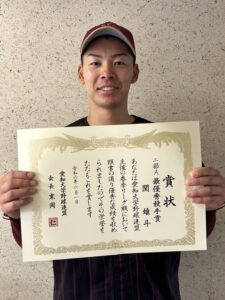 賞状
二部A最優秀投手賞
関 雄斗
あなたは愛知大学野球連盟
主催の春季リーグ戦において
頭書の通り優れた成績を収め
られましたのでその栄誉を
たたえこれを賞します
令和六年六月一日
愛知大学野球連盟
会長